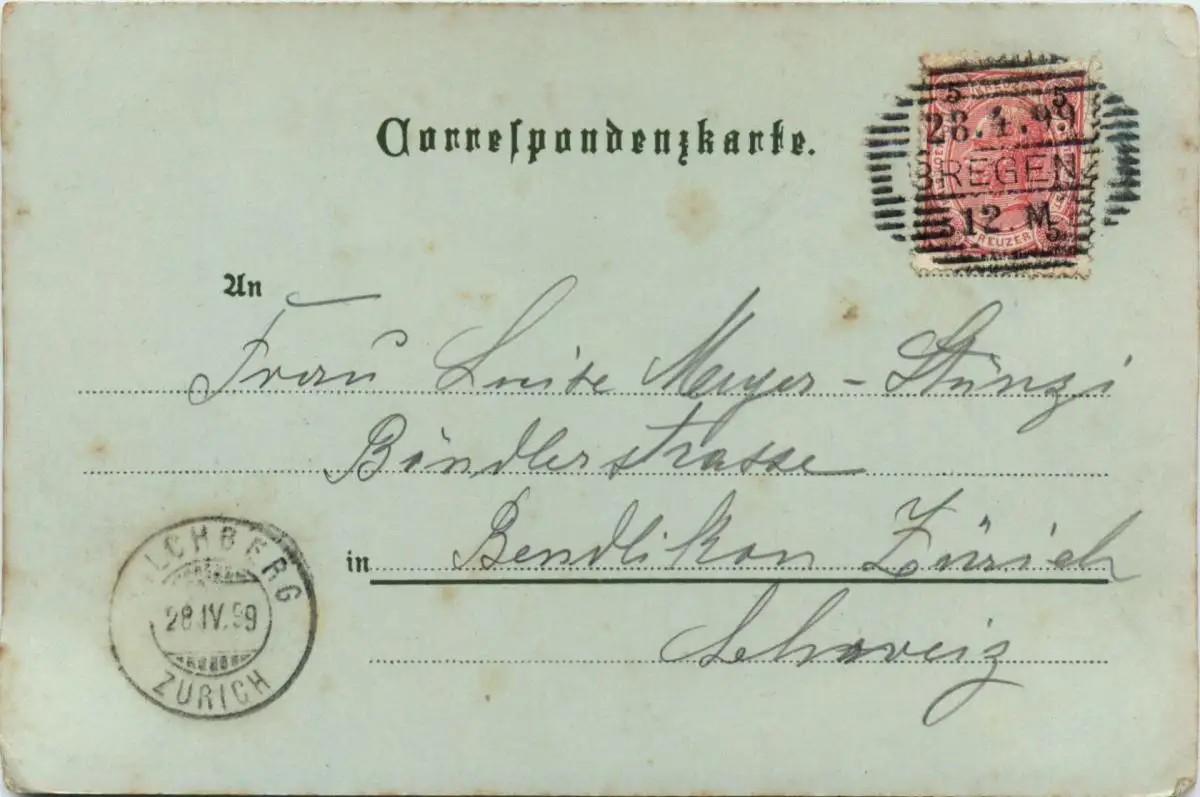 Correspondenzkarte.
5 5
28.4.99
BREGEN
12. M
5
KREUZER
An
Frau Luise Meyer-Stünzi
Bändlerstrasse
in Bendlikon Zürich
Schweiz
ILCHBERG
28.IV.99
ZÜRICH